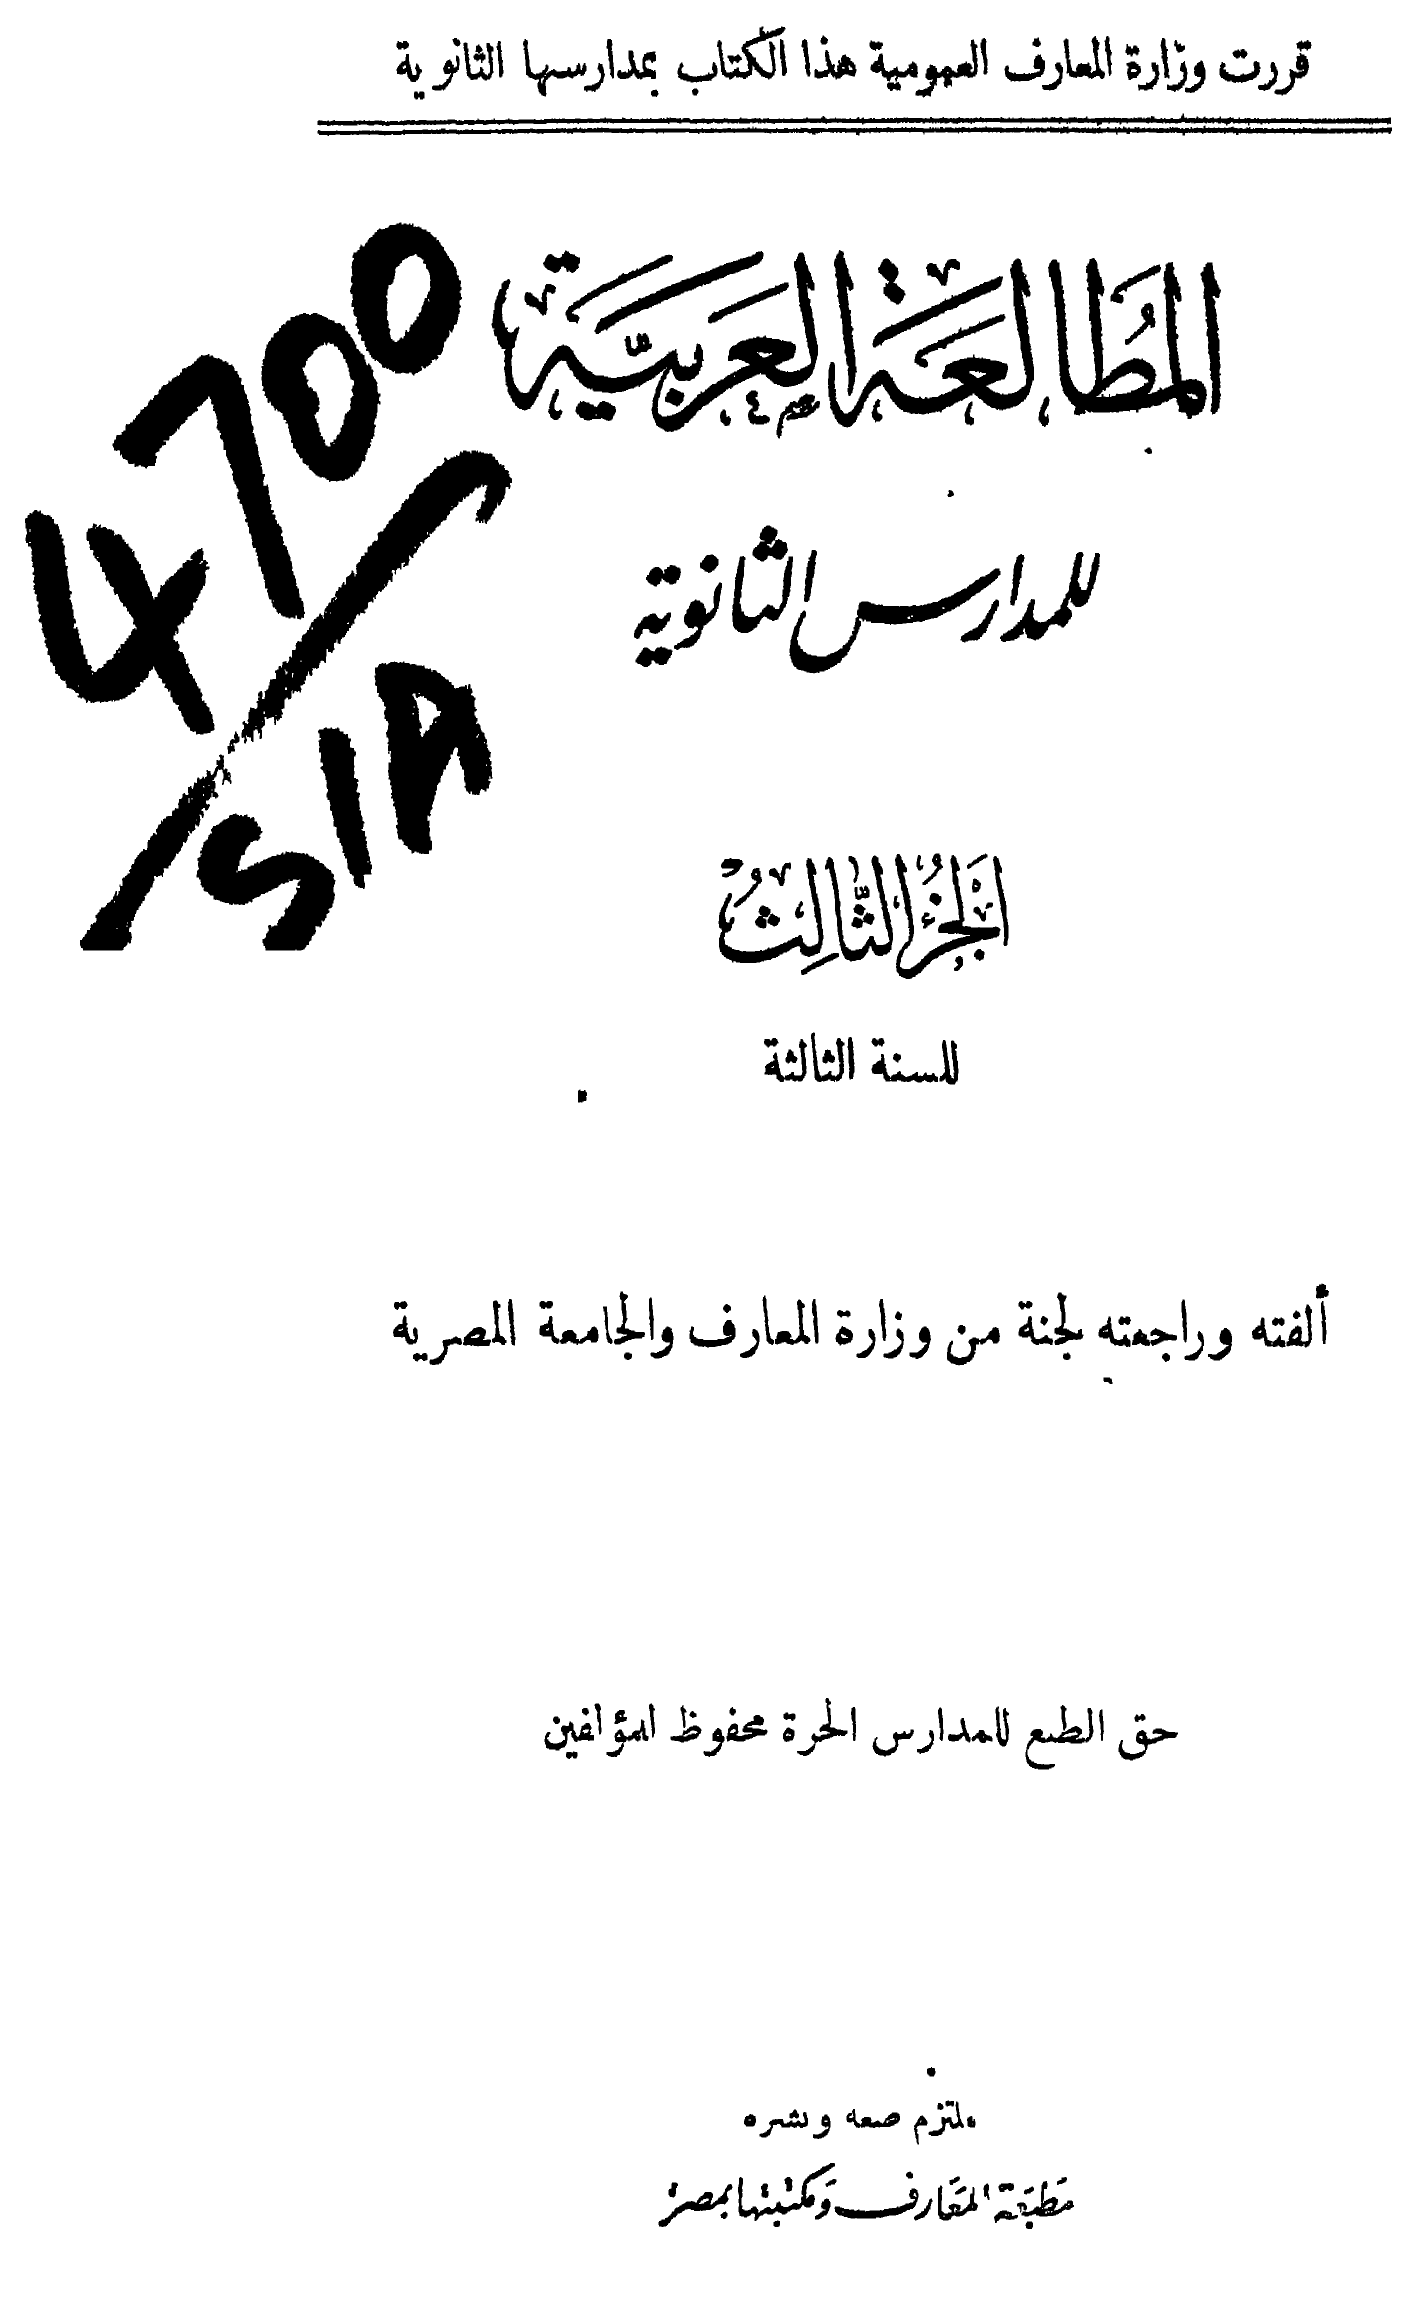 قررت وزارة المعارف العمومية هذا الكتاب بمدارسها الثانوية
المُطَالعَة العَرَبيَّة
للمدارس الثانوية
4700/
SIA
الجُزْءُ الثَّالِثُ
للسنة الثالثة
ألفته وراجعته لجنة من وزارة المعارف والجامعة المصرية
حق الطبع للمدارس الحرة محفوظ للمؤلفين
ملتزم طبعه ونشره
مَطبَعَة المَعَارف وَمكتبتها بمصر